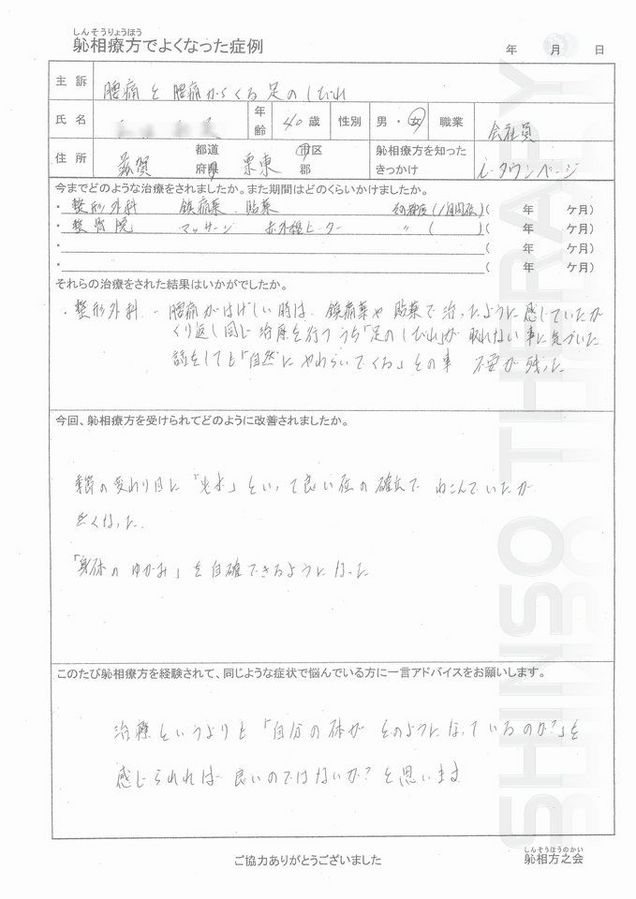 しんそうりょうほう
躰相療方でよくなった症例
年 月 日
主訴 腰痛と腰痛からくる足のしびれ
氏名 年齢 40歳 性別 男・女 職業 会社員
住所 滋賀 都道府県 栗東 市区郡 躰相療方を知ったきっかけ iタウンページ
今までどのような治療をされましたか。また期間はどのくらいかけましたか。
・整形外科 鎮痛薬、貼薬 その都度(1月間位)( 年 ケ月)
・整骨院 マッサージ 赤外線ヒーター 〃 ( )( 年 ケ月)
・ ( 年 ケ月)
・ ( 年 ケ月)
それらの治療をされた結果はいかがでしたか。
・整形外科 - 腰痛がはげしい時は、鎮痛薬や貼薬で治ったように感じていたが
くり返し同じ治療を行ううち「足のしびれ」が取れない事に気づいた
話をしても「自然にやわらいでくる」との事 不安が残った
今回、躰相療方を受けられてどのように改善されましたか。
季節の変わり目に といって良い位の確立で ねこんでいたが
無くなった.
「身体のゆがみ」を自確できるようになった
このたび躰相療方を経験されて、同じような症状で悩んでいる方に一言アドバイスをお願いします。
治療というよりも「自分の体が どのようになっているのか?」を
感じられれば 良いのではないか?と思います
ご協力ありがとうございました
しんそうほうのかい
躰相方之会
SHINSO THERAPY